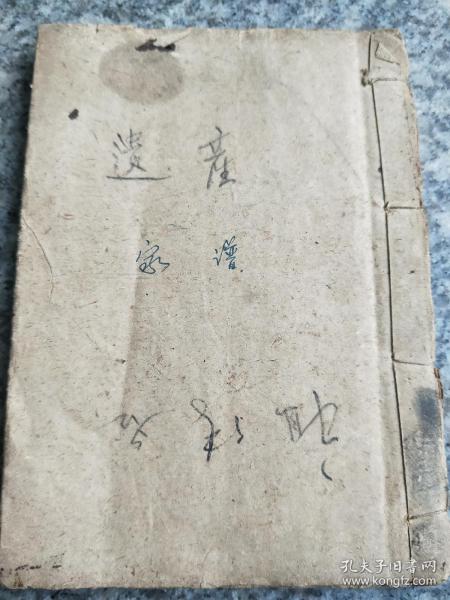 遗產
家谱
孔夫子旧书网
www.kongfz.com